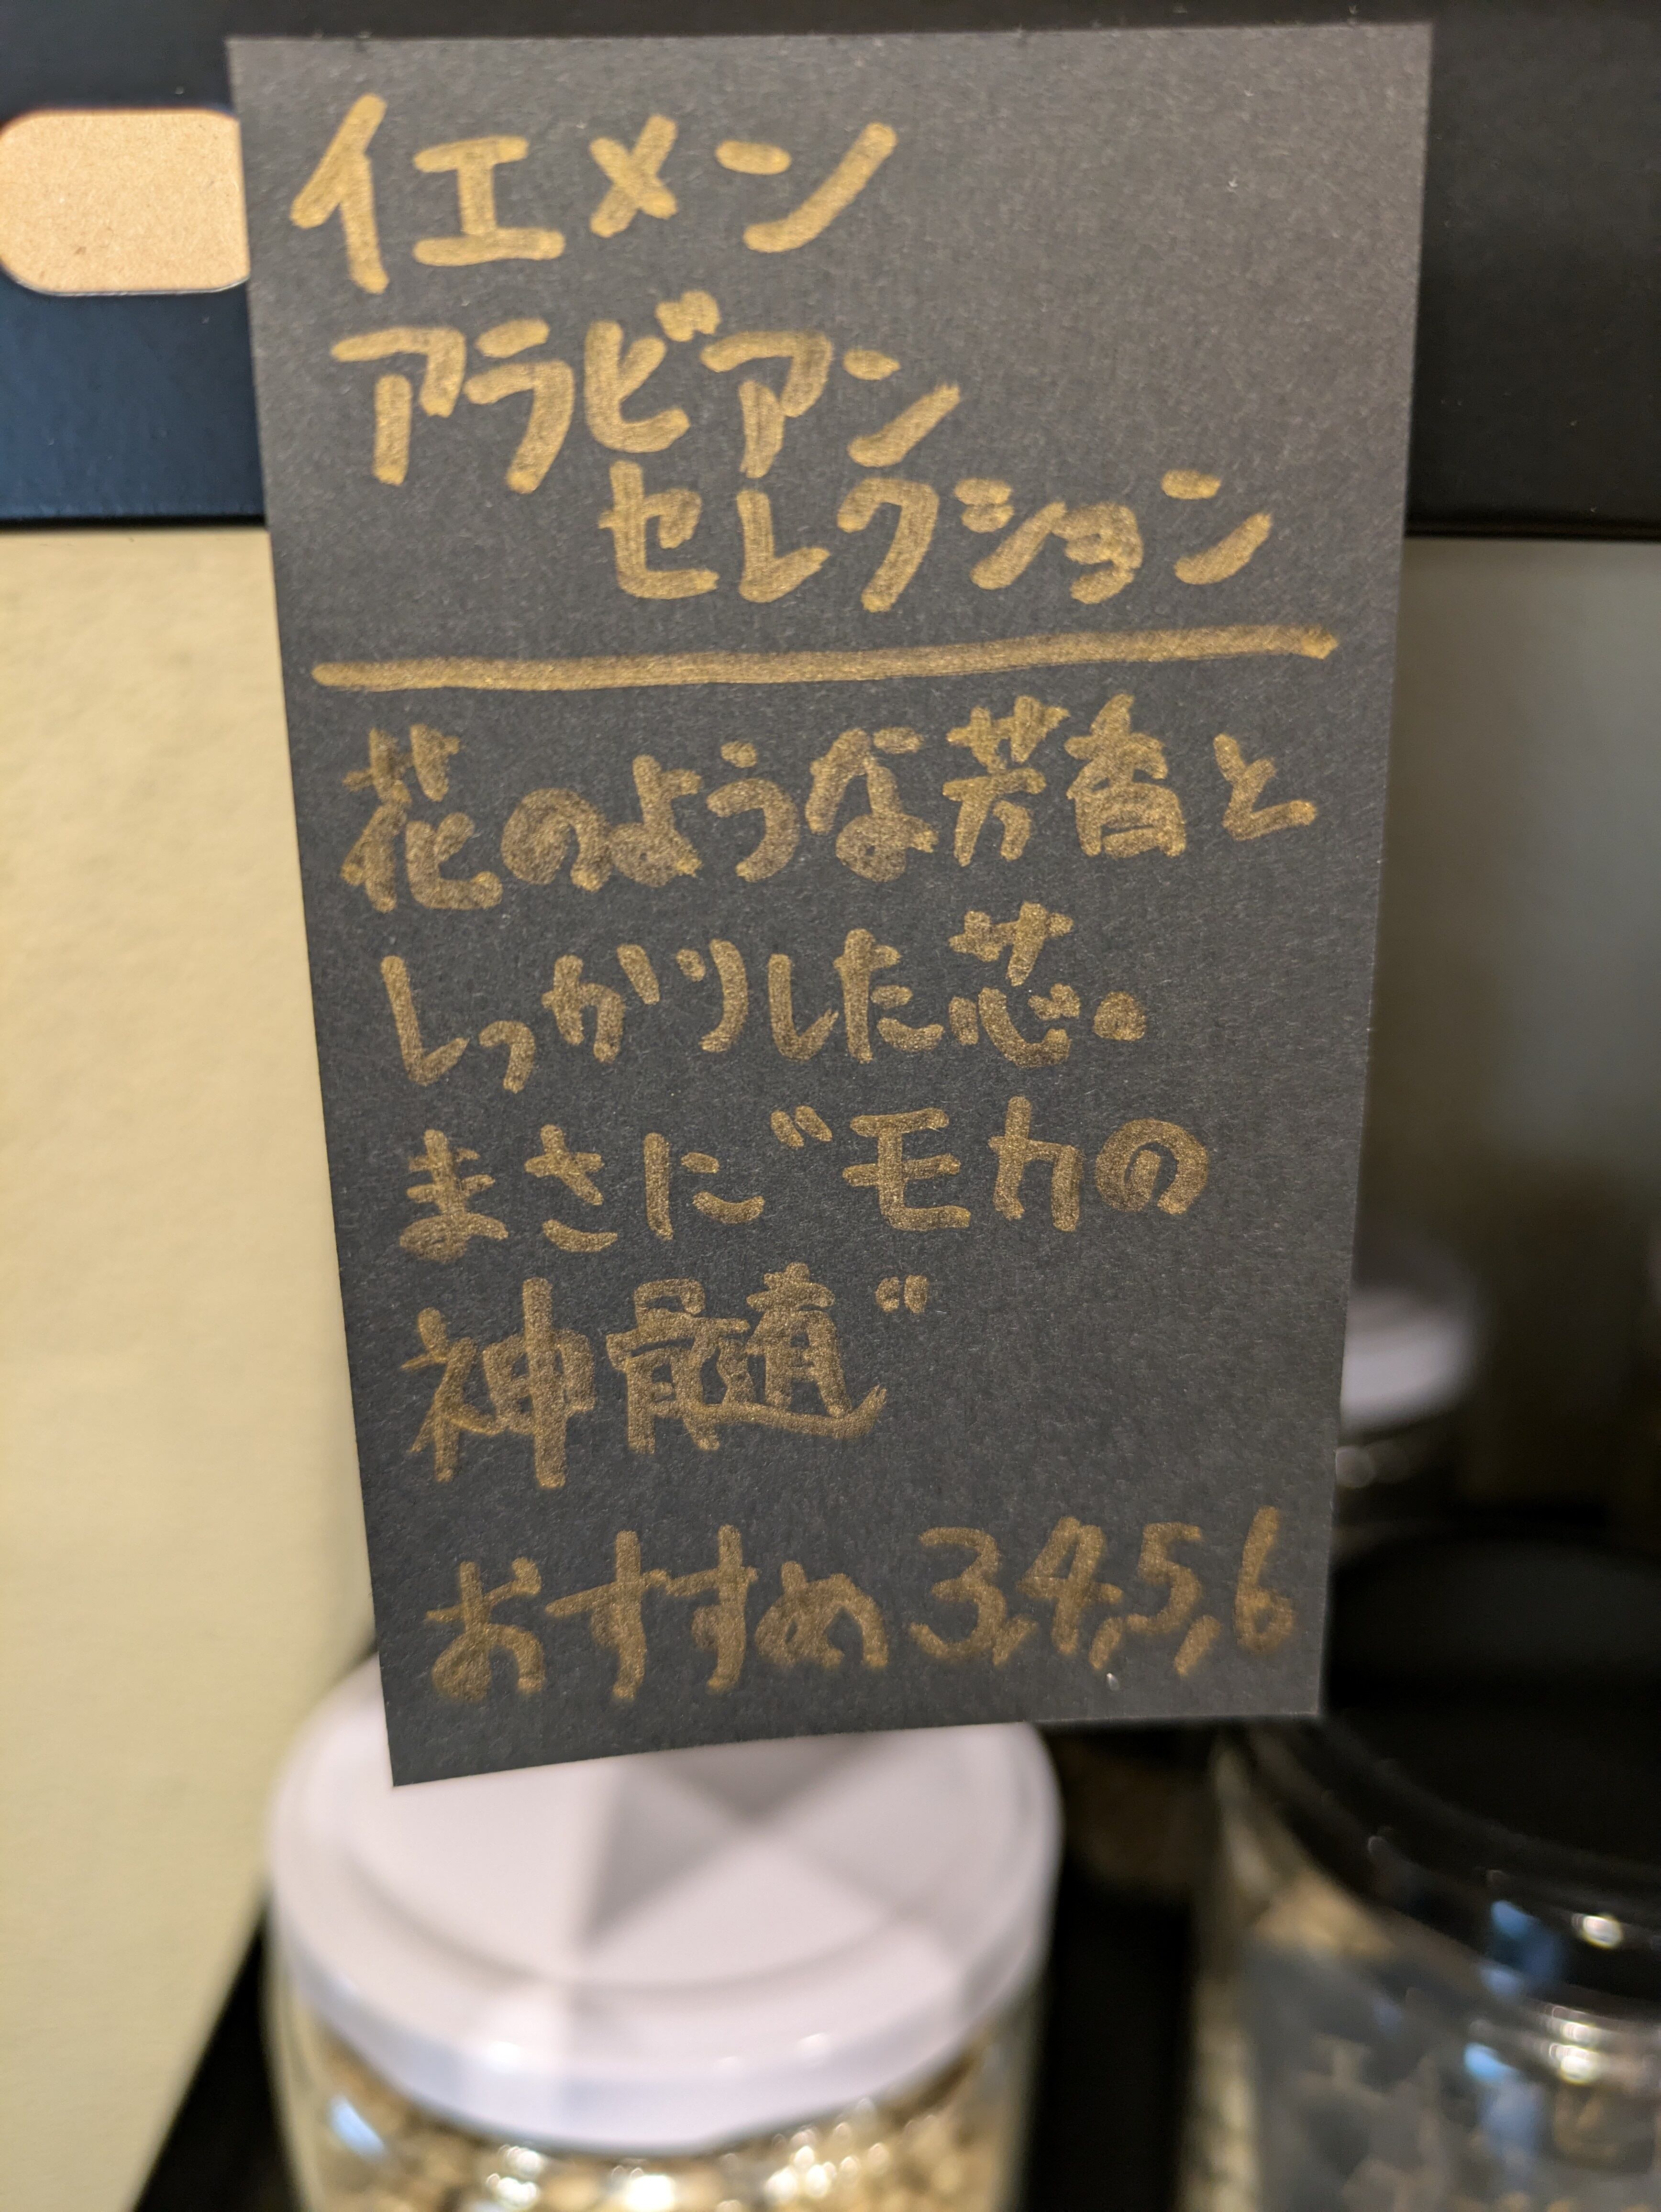 イエメン
アラビアン
セレクション
花のような芳香と
しっかりした芯。
まさに“モカの
神髄”
おすすめ 3,4,5,6